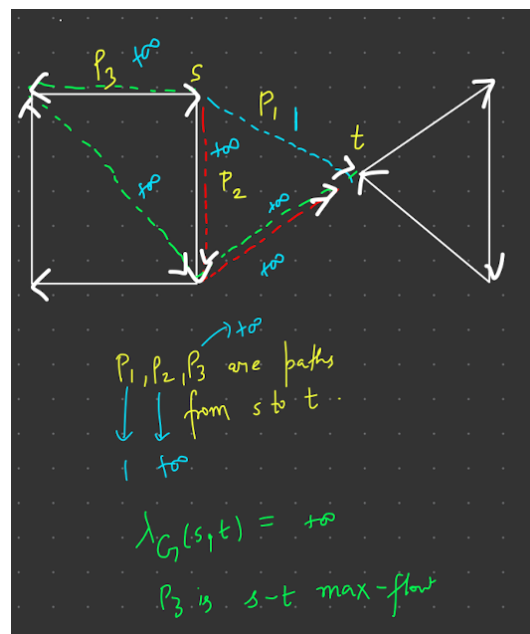 P₃ +∞ s
P₁ 1 t
+∞
P₂
+∞
+∞
+∞
→ +∞
P₁, P₂, P₃ are paths
from s to t.
1 +∞
λ_G(s,t) = +∞
P₃ is s-t max-flow